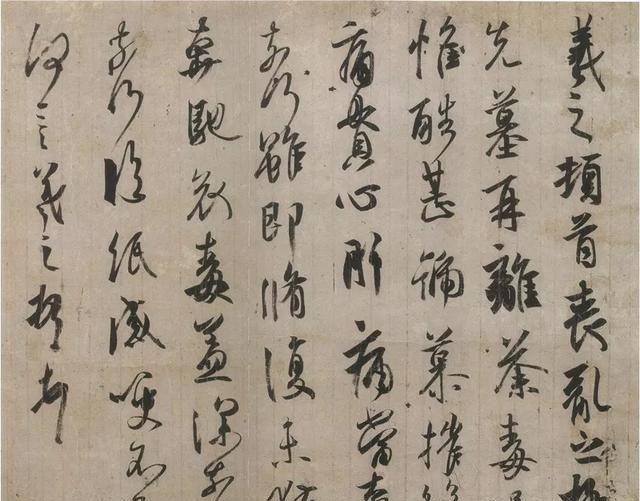 羲之頓首喪亂之極
先墓再離荼毒
惟酷甚號慕摧絶
痛貫心肝痛當奈
奈何雖即脩復未獲
奔馳哀毒益深奈
奈何臨紙感哽不知
何言羲之頓首